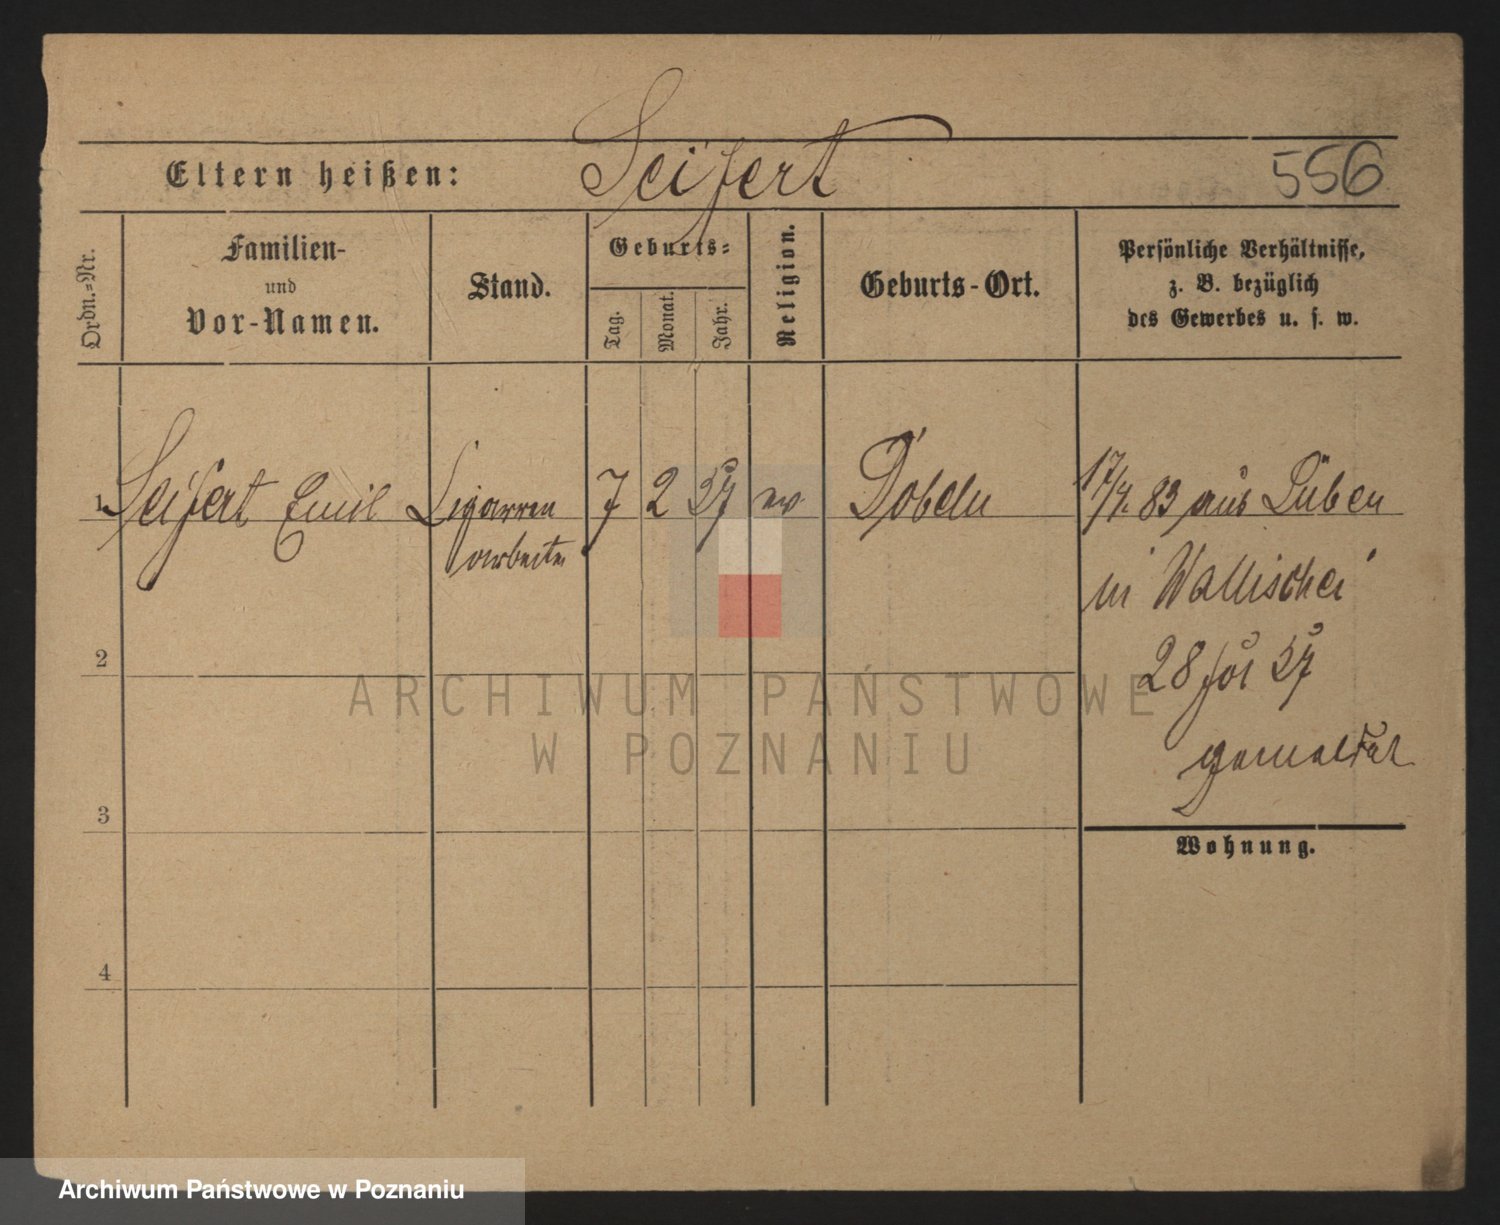 Eltern heißen: Seifert 556
Ordn.=Nr.
Familien-
und
Vor-Namen.
Stand.
Geburts=
Tag.
Monat.
Jahr.
Religion.
Geburts-Ort.
Persönliche Verhältnisse,
z. B. bezüglich
des Gewerbes u. s. w.
1 Seifert Emil Cigarren 7 2 57 ev Döbeln 17/7. 83 aus Düben
arbeiter
in Wallischei
28 57
gemeldet
2
3
Wohnung.
4
ARCHIWUM PAŃSTWOWE
W POZNANIU
Archiwum Państwowe w Poznaniu